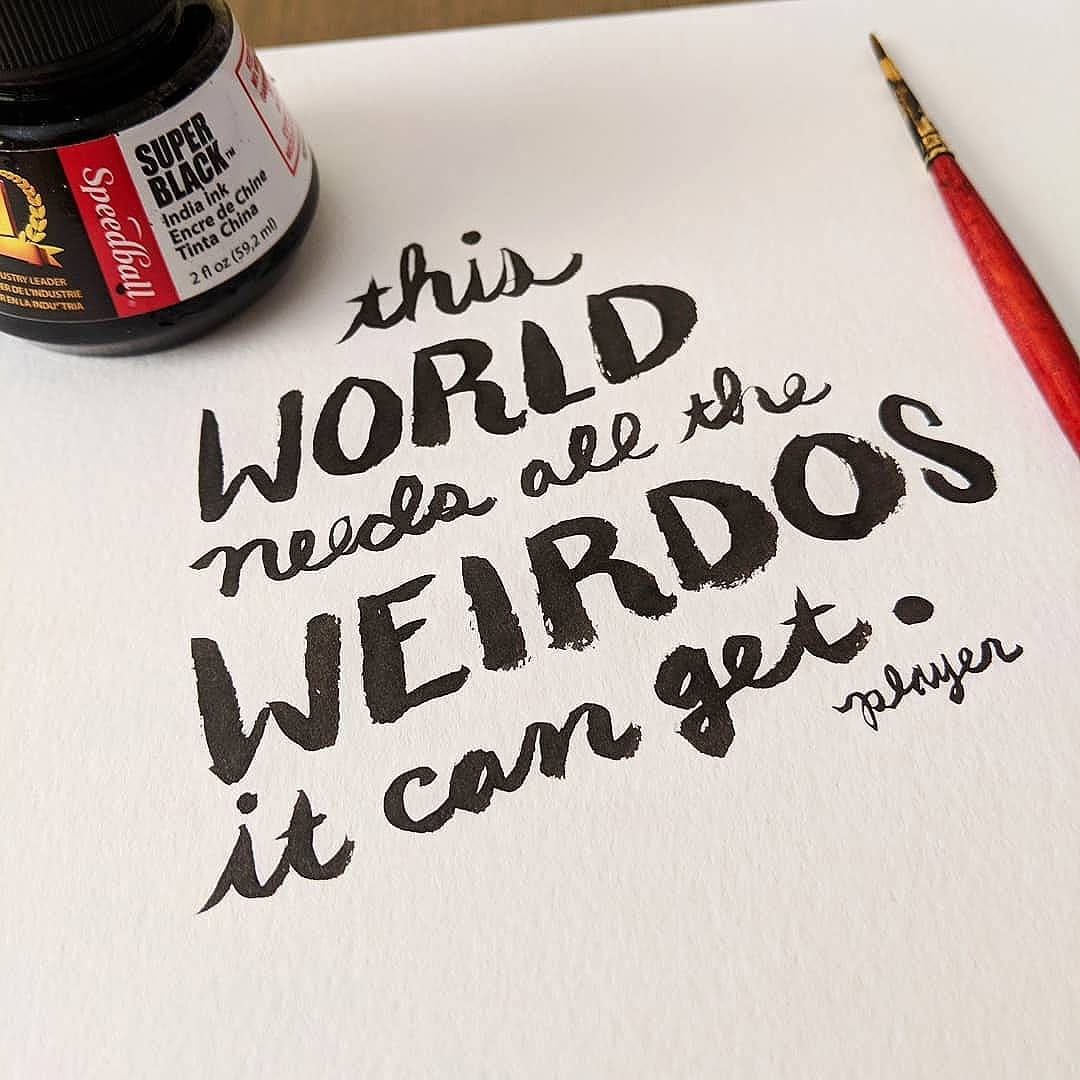 Speedball
SUPER
BLACK™
India Ink
Encre de Chine
Tinta China
2 fl oz (59,2 ml)
USTRY LEADER
ER DE L'INDUSTRIE
R EN LA INDUSTRIA
this
WORLD
needs all the
WEIRDOS
it can get.
player